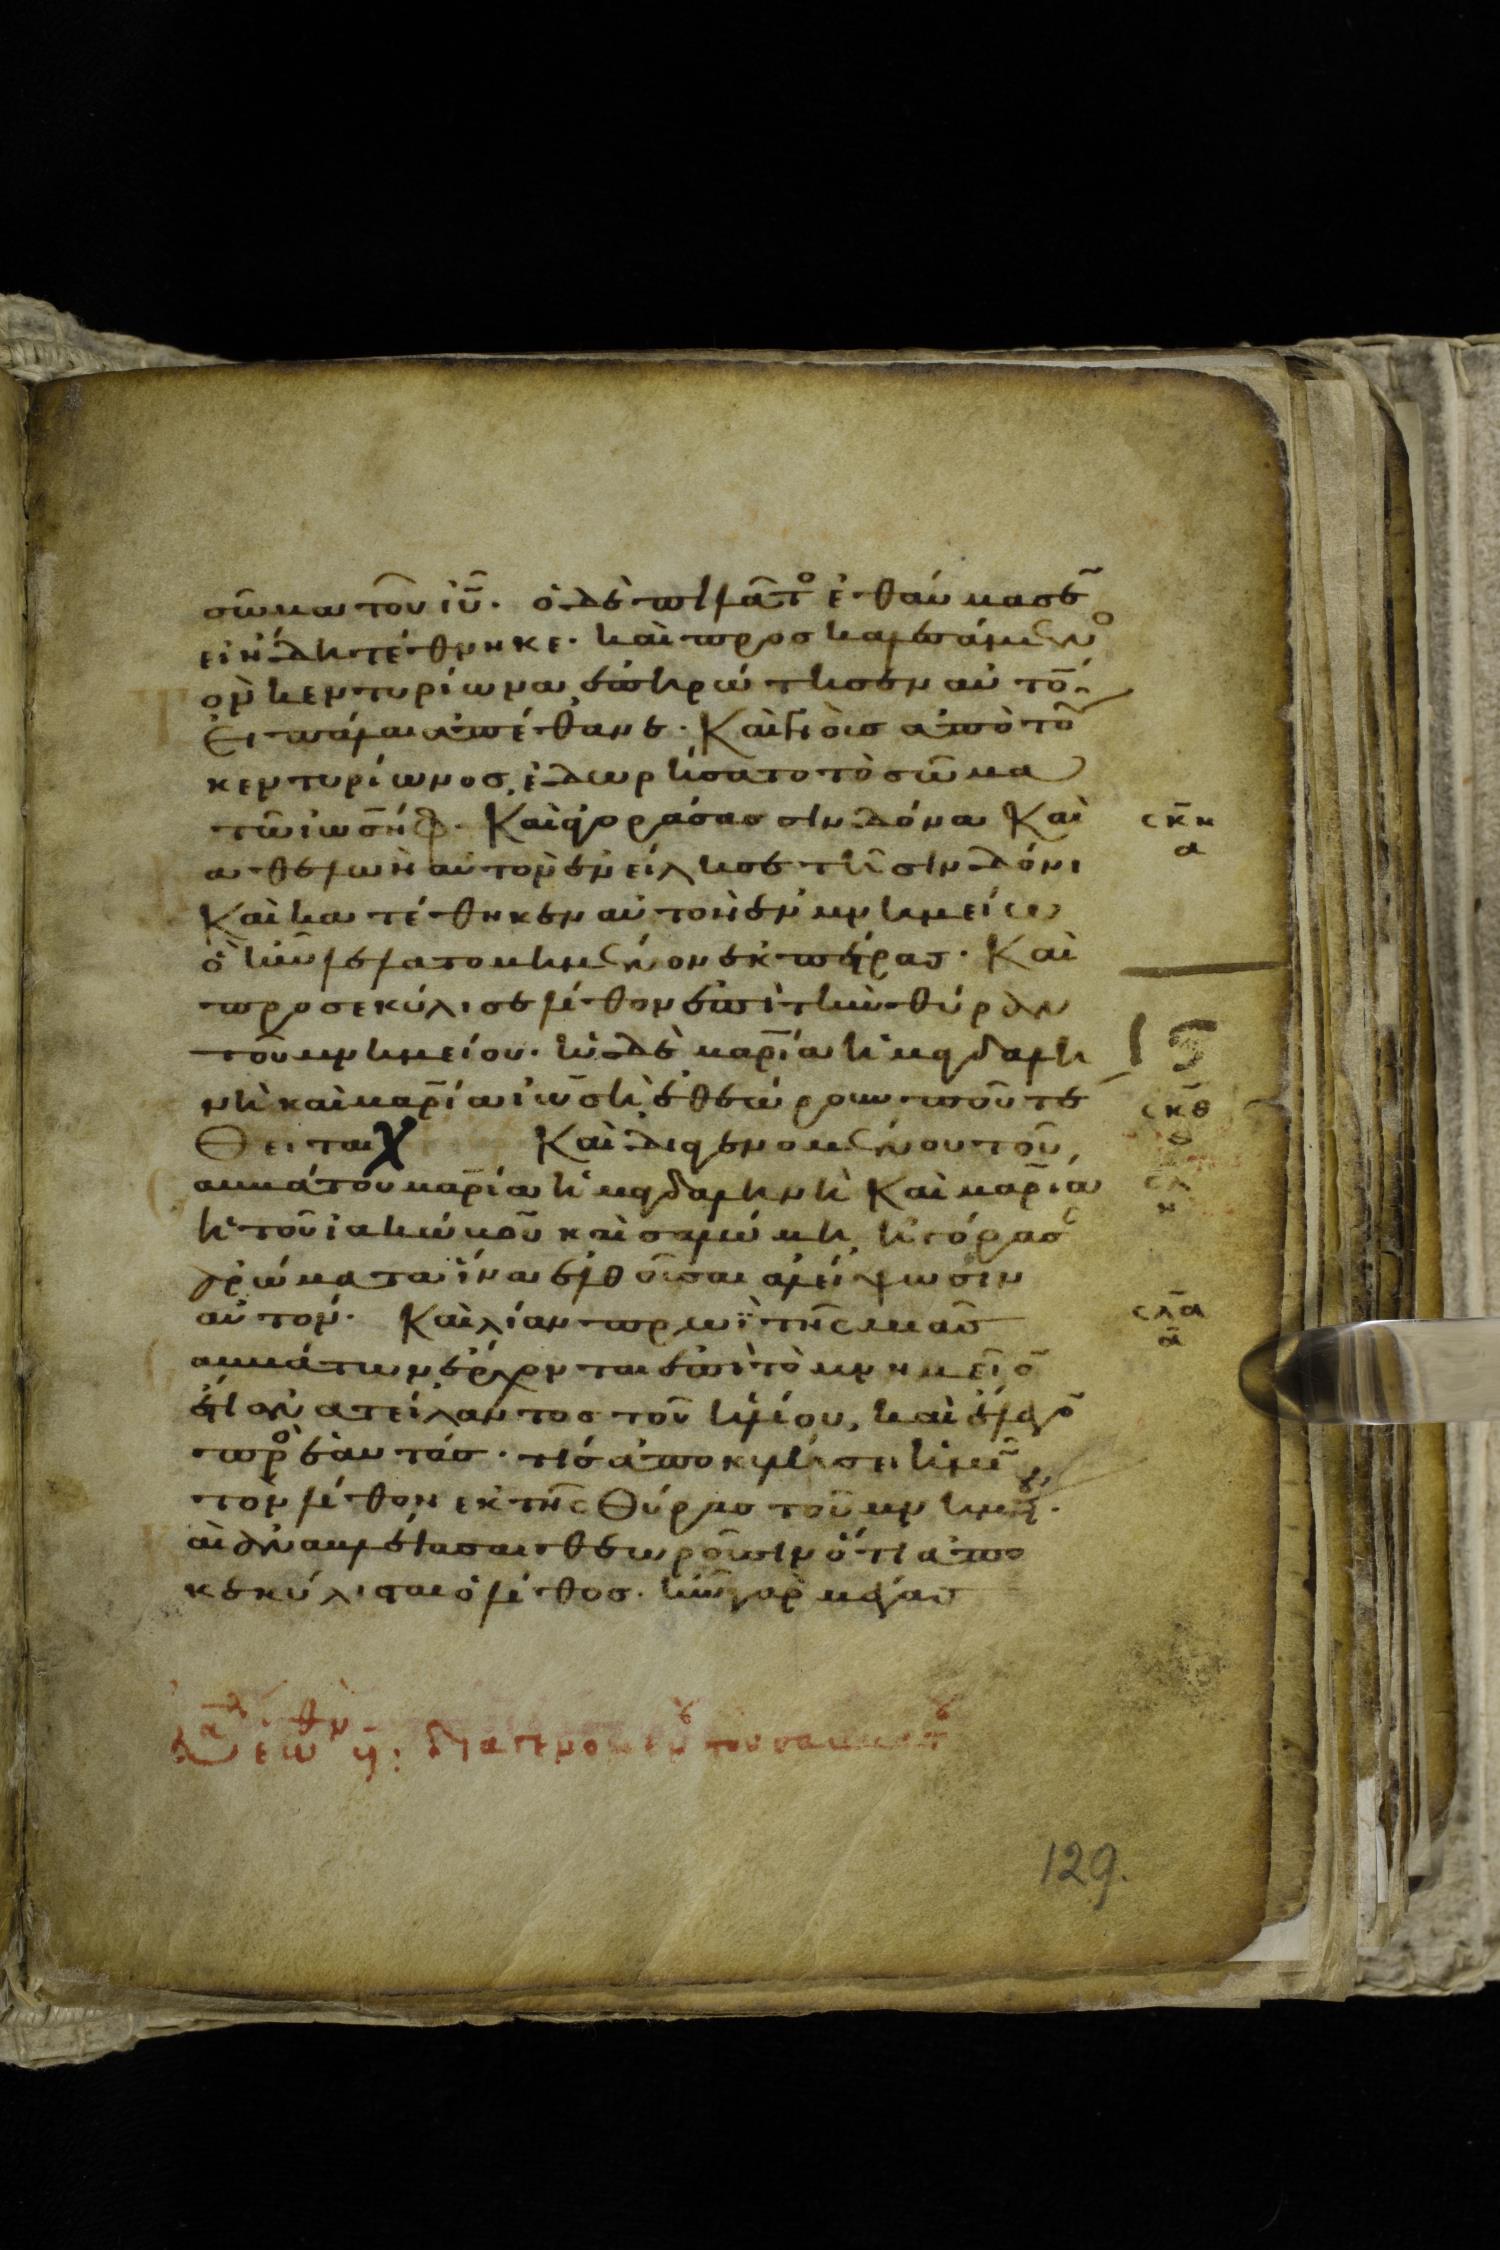 σῶμα τοῦ ἰῦ. ὁ δὲ πιλᾶτο ἐθαύμασε
εἰ ἤδη τέθνηκε. καὶ προσκαλεσάμενο
ὸν κεντυρίωνα ἐπηρώτησεν αὐτὸ
ἐι πάλαι ἀπέθανε. Καὶ γνοὺσ ἀπὸ τοῦ
κεντυρίωνοσ, ἐδωρήσατο τὸ σῶμα
τῶ ἰωσὴφ. Καὶ ἀγοράσασ σινδόνα Καὶ
καθελὼν αὐτὸν ἐνείλησε τῆ σινδόνι
Καὶ κατέθηκεν αὐτὸν ἐν μνημείω
ὃ ἦν λελατομημένον ἐκ πέτρασ. Καὶ
προσεκύλισε λίθον ἐπὶ τὴν θύραν
τοῦ μνημείου. ἡ δὲ μαρία ἡ μαγδαλη
νὴ καὶ μαρία ἰωσῆ ἐθεώρουν ποῦ τέ
θειται χ Καὶ διαγενομένου τοῦ
σαββάτου μαρία ἡ μαγδαληνὴ Καὶ μαρία
ἡ τοῦ ἰακώβου καὶ σαλώμη, ἠγόρασ
ἀρώματα ἵνα ἐλθοῦσαι ἀλείψωσιν
αὐτόν. Καὶ λίαν πρωῒ τῆς μιᾶσ
σαββάτων ἔρχονται ἐπὶ τὸ μνημεῖο
ἔτι ἀνατείλαντοσ τοῦ ἡλίου, καὶ ἔλεγο
πρὸ ἑαυτάσ. τίσ ἀποκυλίσει ἡμῖ
τὸν λίθον ἐκ τῆς θύρασ τοῦ μνημεί.
καὶ ἀναβλέψασαι θεωροῦσιν ὅτι ἀπο
κεκύλισται ὁ λίθοσ. ἦν γὰρ μέγασ
ςκη
α
ςκθ
ςλ
η
ςλα
α
129.